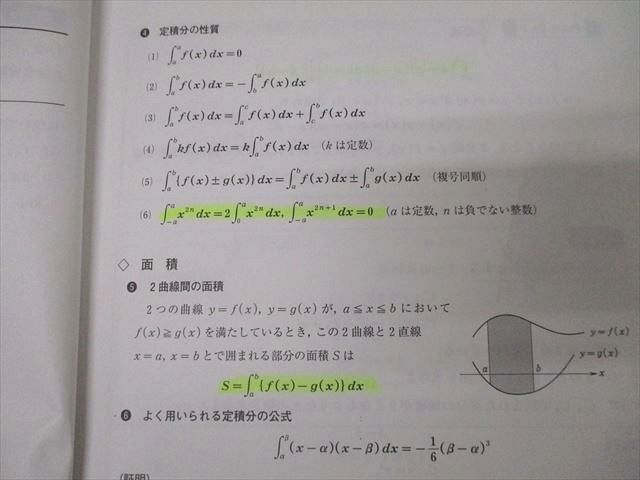 ❹ 定積分の性質
(1) ∫_a^a f(x)dx=0
(2) ∫_a^b f(x)dx=-∫_b^a f(x)dx
(3) ∫_a^b f(x)dx=∫_a^c f(x)dx+∫_c^b f(x)dx
(4) ∫_a^b kf(x)dx=k∫_a^b f(x)dx (kは定数)
(5) ∫_a^b {f(x)±g(x)}dx=∫_a^b f(x)dx±∫_a^b g(x)dx (複号同順)
(6) ∫_{-a}^a x^{2n}dx=2∫_0^a x^{2n}dx, ∫_{-a}^a x^{2n+1}dx=0 (aは定数, nは負でない整数)
◇ 面 積
❺ 2曲線間の面積
2つの曲線 y=f(x), y=g(x) が, a≦x≦b において
f(x)≧g(x) を満たしているとき, この2曲線と2直線
x=a, x=b とで囲まれる部分の面積 S は
S=∫_a^b {f(x)-g(x)}dx
y=f(x)
y=g(x)
a b x
❻ よく用いられる定積分の公式
∫_α^β (x-α)(x-β)dx=-1/6(β-α)^3
(証明)